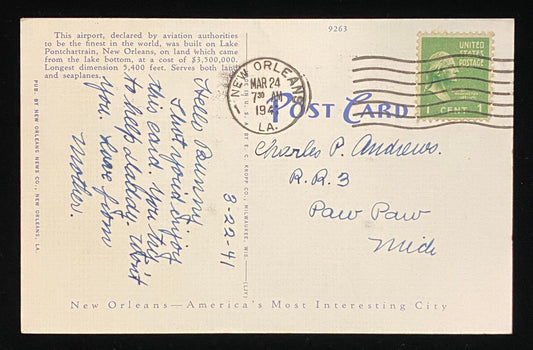 This airport, declared by aviation authorities
to be the finest in the world, was built on Lake
Pontchartrain, New Orleans, on land which came
from the lake bottom, at a cost of $3,500,000.
Longest dimension 5,400 feet. Serves both land
and seaplanes.
9263
UNITED
STATES
POSTAGE
CENT 1
NEW ORLEANS
MAR 24
7 30 AM
194
LA.
POST CARD
PUB. BY NEW ORLEANS NEWS CO., NEW ORLEANS, LA.
BY E. C. KROPP CO., MILWAUKEE, WIS.
3-22-41
Hello Bunny
Just you'd enjoy
this card. You try
to help daddy. Won't
you. Love from
Mother.
Charles P. Andrews.
R.R. 3
Paw Paw
Mich
New Orleans—America's Most Interesting City